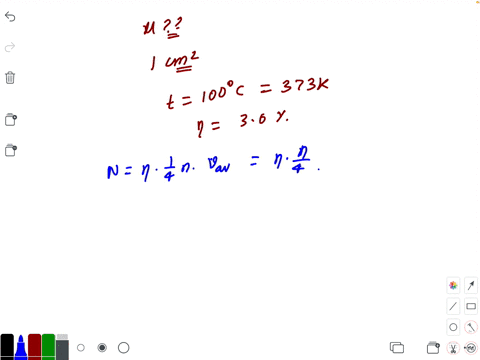 μ ??
1 cm²
t = 100°C = 373K
η = 3.0 %.
N = η · 1/4 n · v_av = η · n/4 .